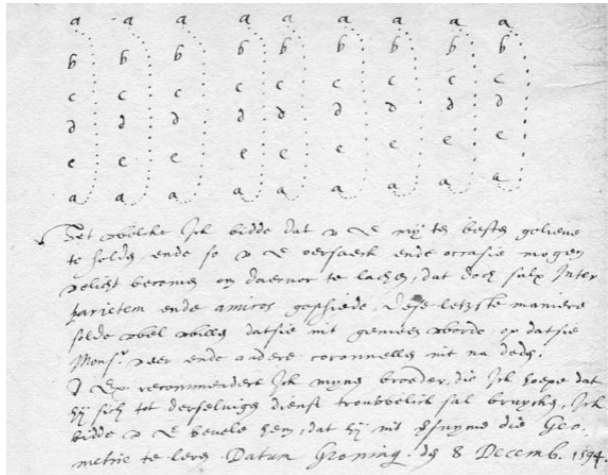 a a a a a a a a a
b b b b b b b b b
c c c c c c c c c
d d d d d d d d d
e e e e e e e e e
a a a a a a a a a
Het welcke Ick bidde dat U E my ten besten gelieve
te holden, ende so U E oersaeck ende occasie mogen
velicht becomen om daervor te lachen, dat doch sulx Inter
parietem ende amicos geschiede, Dese letzste maniere
solde wel willen datsie nit gemeen worde, op datsie
Monsr. veer ende andere coronnellen nit na deden.
U Ex recommendere Ick mynen broeder, die Ick hoepe dat
hy sich tot derselvigen dienst trouwelick sal bruycken, Ick
bidde U E bevele hem, dat hy nit die Geo-
metrie te leren Datum Groning. den 8 Decemb. 1594.